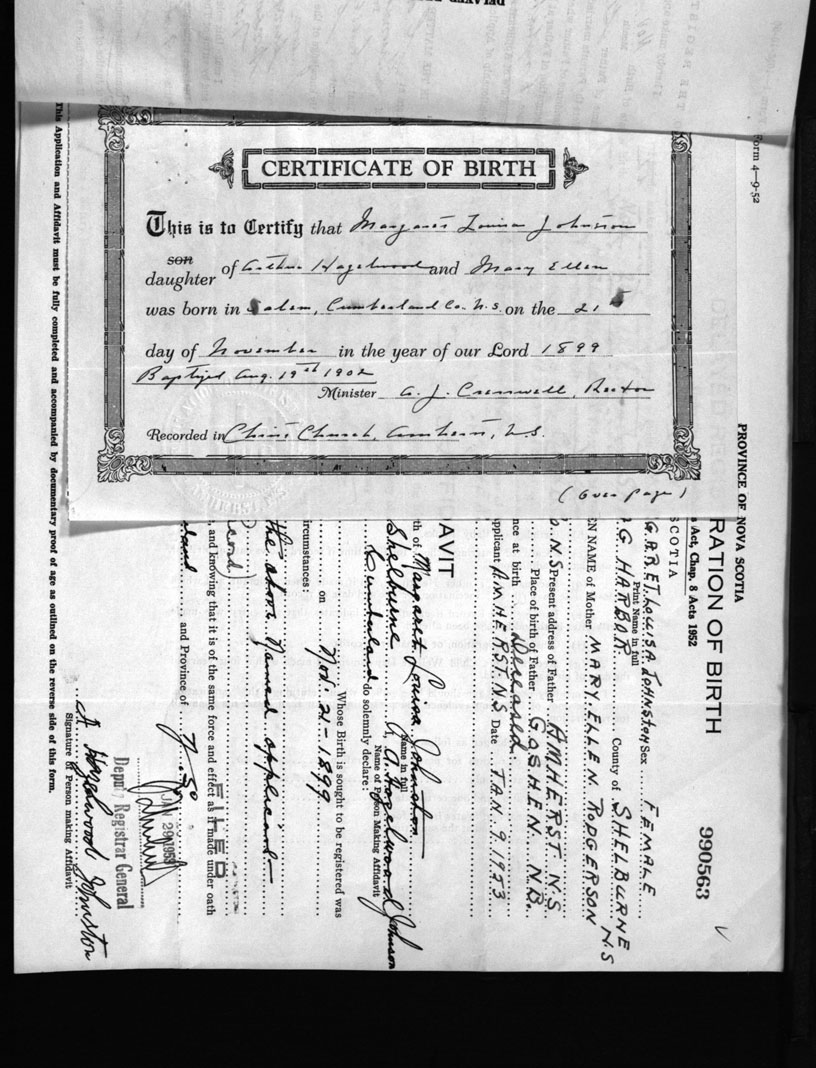 CERTIFICATE OF BIRTH
This is to Certify that Margaret Louisa Johnston
son
daughter of Arthur Hazelwood and Mary Ellen
was born in Salem, Cumberland Co. N.S. on the 21st
day of November in the year of our Lord 1899
Baptized Aug. 19th 1902
Minister A. J. Cresswell, Rector
Recorded in Christ Church, Amherst, N.S.
(Over page)
Form 4—9-52
PROVINCE OF NOVA SCOTIA
Act, Chap. 8 Acts 1952
RATION OF BIRTH
990563
SCOTIA
GARET LOUISA JOHNSTON Sex FEMALE
Print Name in full
G HARBOR County of SHELBURNE N S
N NAME of Mother MARY ELLEN RODGERSON
N.S Present address of Father AMHERST N.S
Place of birth of Father GOSHEN N.B.
nce at birth Deceased
applicant AMHERST. N.S Date JAN. 9. 1953
AVIT
th of Margaret Louisa Johnston
Name in full
Shelburne I, A. Hazelwood Johnson
Name of Person Making Affidavit
Cumberland do solemnly declare:
Whose Birth is sought to be registered was
on Nov. 21-1899
ircumstances:
the above Named applicant
, and knowing that it is of the same force and effect as if made under oath
FILED
land and Province of N.S.
JAN 29 1953
Deputy Registrar General
A Hazelwood Johnston
Signature of Person making Affidavit
This Application and Affidavit must be fully completed and accompanied by documentary proof of age as outlined on the reverse side of this form.